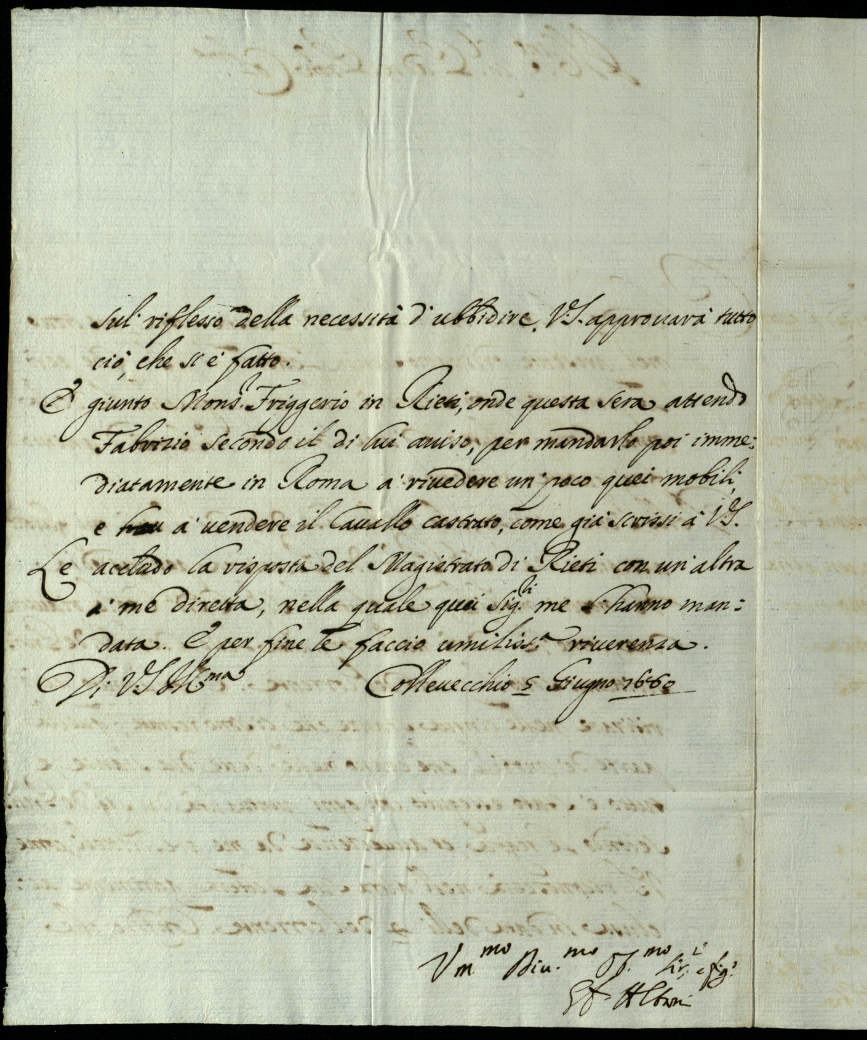 sul' riflesso della necessità d'ubbidire. V.S. approuarà tutto
ciò, che si è fatto.
È giunto Mons.r Friggerio in Rieti, onde questa sera attendo
Fabrizio secondo il di lui auiso, per mandarlo poi imme:
diatamente in Roma a' riuedere un' poco quei mobili,
e a' uendere il Cauallo castrato, come già scrissi à V.S.
Le accludo la risposta del Magistrato di Rieti con un'altra
a' me diretta, nella quale quei Sig.ri me l'hanno man:
data. E per fine le faccio umiliss.a riuerenza.
Di V.S. Ill.ma Colleuecchio 5 Giugno 1660
Vm.mo Diu.mo Ob.mo Ser.e e fig.o